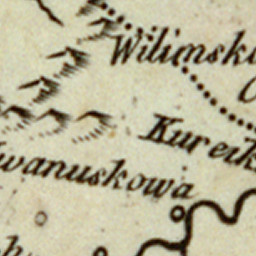 Wilimsk
Kureik
wanuskowa